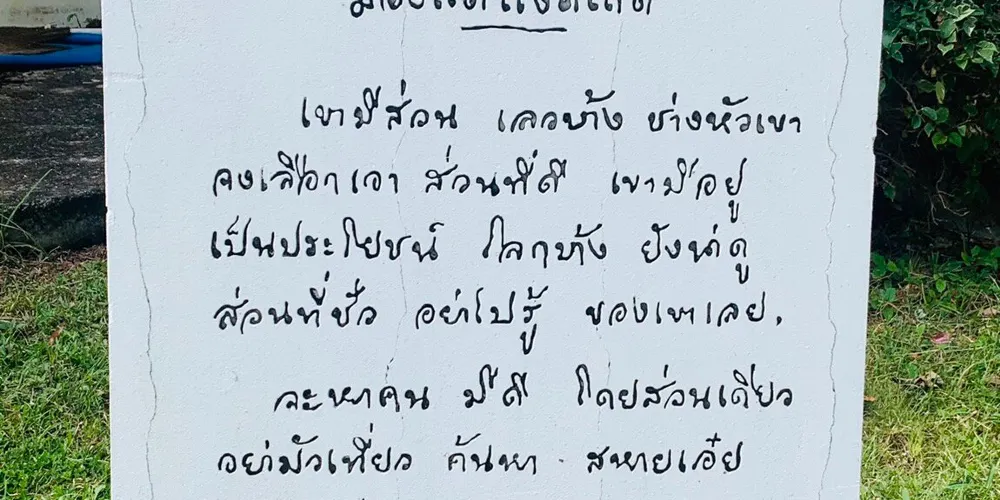 มองแต่แง่ดีเถิด
เขามีส่วน เลวบ้าง ช่างหัวเขา
จงเลือกเอา ส่วนที่ดี เขามีอยู่
เป็นประโยชน์ โลกบ้าง ยังน่าดู
ส่วนที่ชั่ว อย่าไปรู้ ของเขาเลย.
จะหาคน มีดี โดยส่วนเดียว
อย่ามัวเที่ยว ค้นหา สหายเอ๋ย